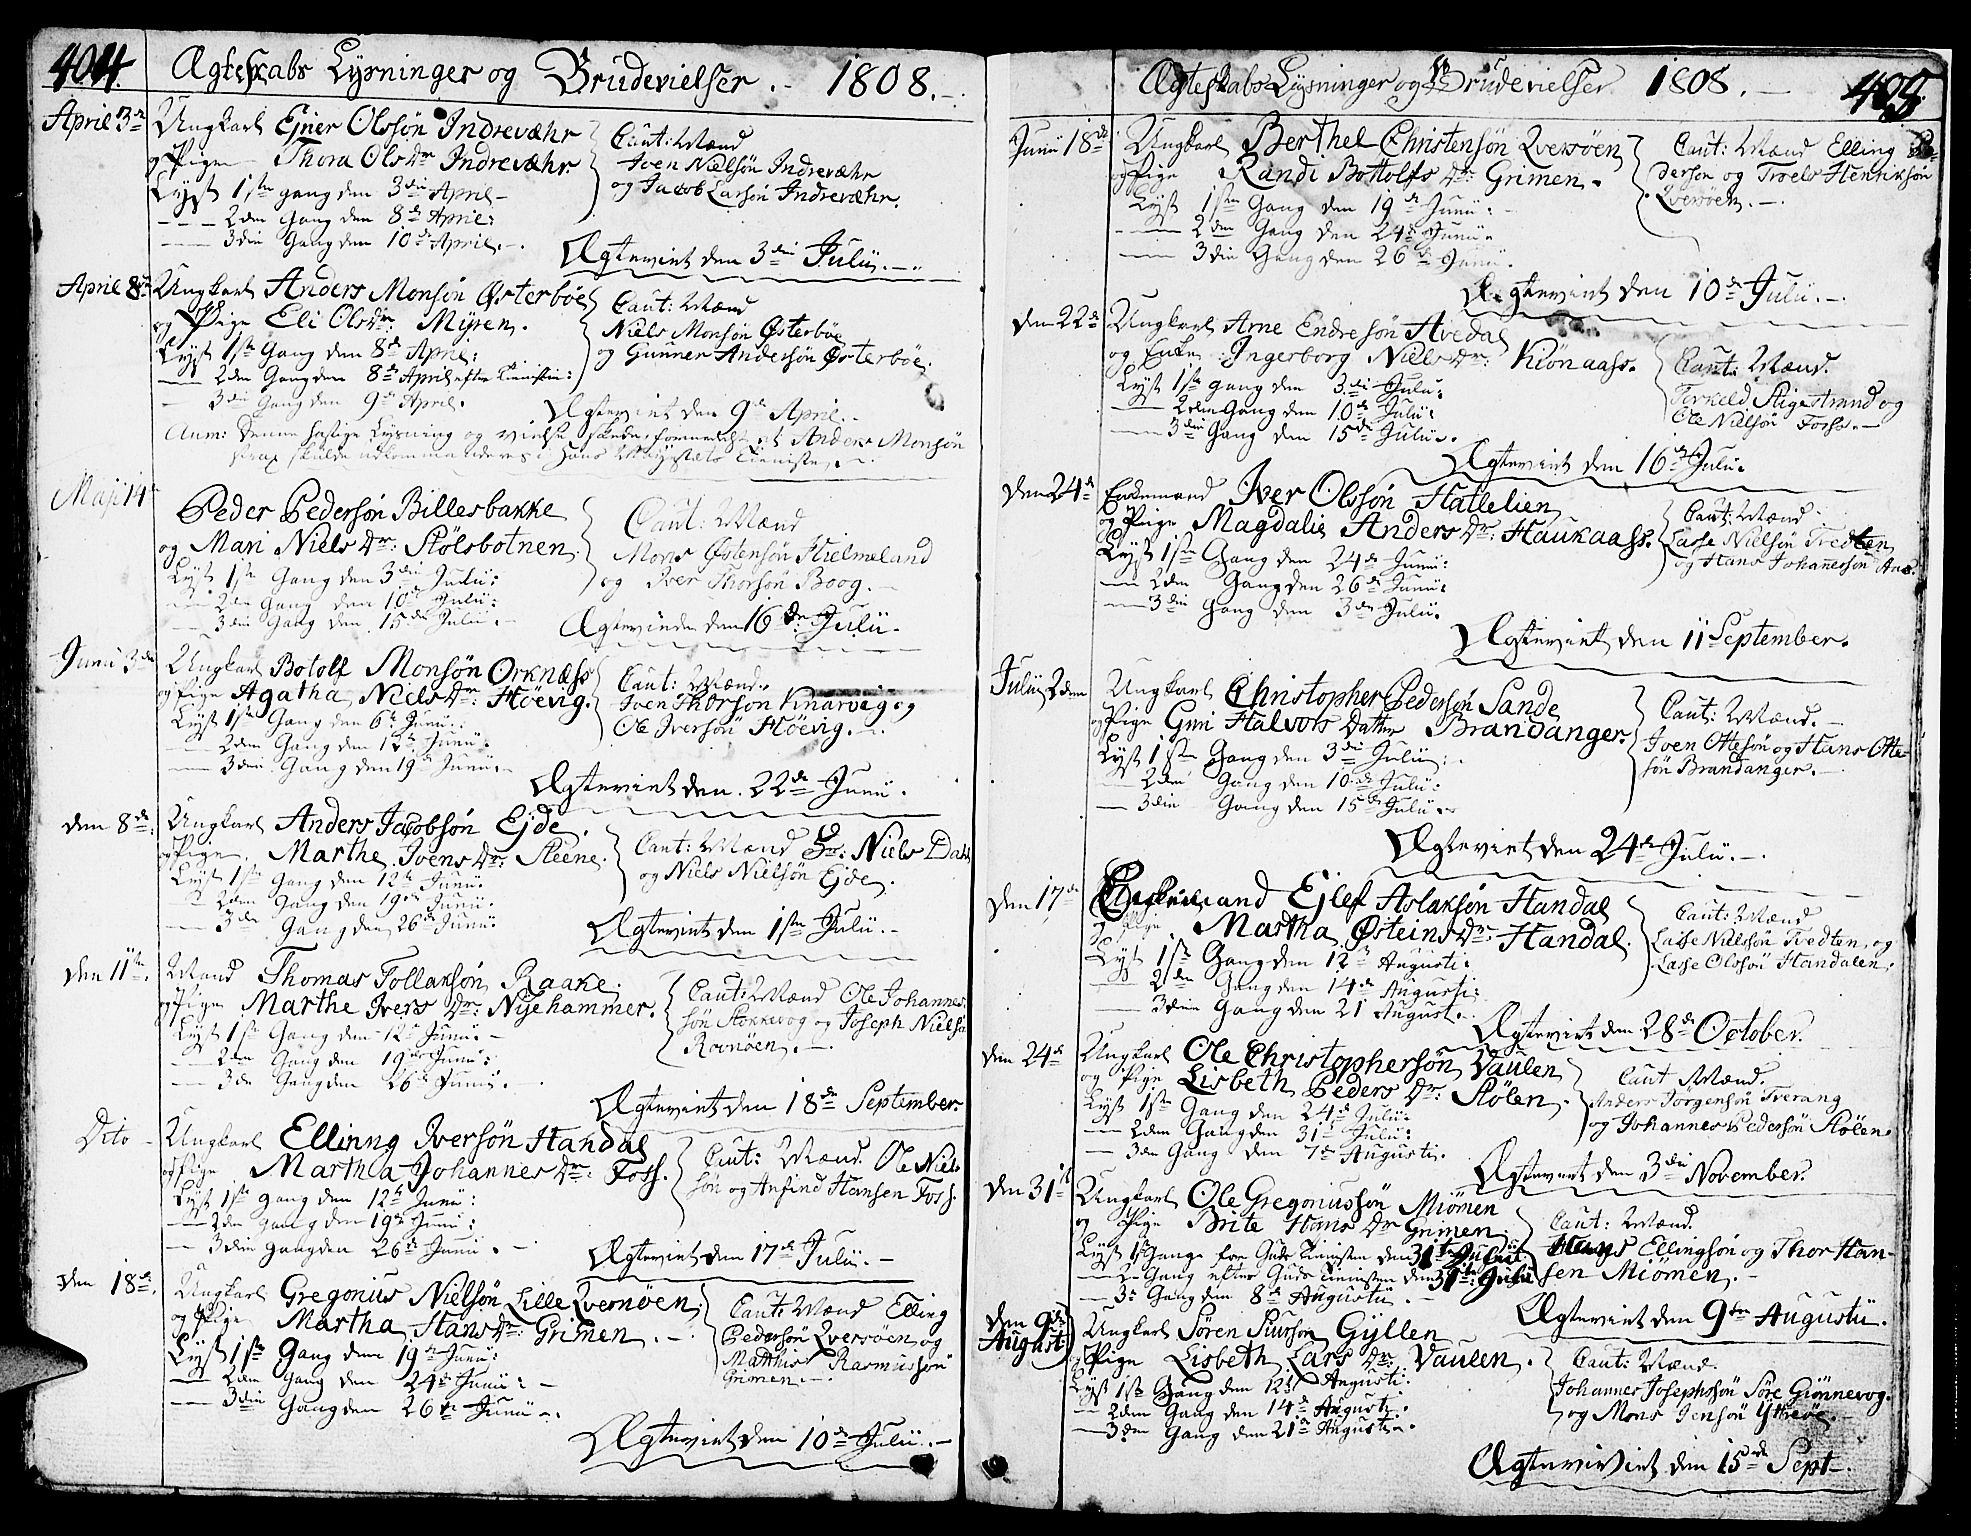 404. Ægteskabs Lysninger og Brudevielser.- 1808.-
April 3de Ungkarl Ejner Olssøn Indrevæhr
og Pigen Thora Ols Dr. Indrevæhr.
Caut: Mænd
Iven Nielsøn Indrevæhr
og Jacob Larsøn Indrevæhr.
Lyst 1ste gang den 3die April -
--- 2den Gang den 8de April:
--- 3die Gang den 10de April.-
Ægteviet den 3die Julii.-
April 8de Ungkarl Anders Monsøn Østerbøe
og Pige Eli Olsdr: Myren.
Caut: Mænd
Niels Monsøn Østerbøe
og Gunner Andersøn Østerbøe.
Lyst 1ste Gang den 8de April:
--- 2den Gang den 8de April efter Tienisten:
- 3die Gang den 9de April.
Ægteviet den 9de April.-
Anm: Denne hastige Lysning og vielse skede formedelst at Anders Monsøn
strax skulde udkommanderes i Hans Majestæts Tieniste.
Maji 14
Peder Pedersøn Billesbakke
og Mari Niels Dr: Stølsbotnen.
Caut: Mænd
Mons Østensøn Hielmeland
og Iver Thorsøn Boog.
Lyst 1ste Gang den 3die Julii:
--- 2den Gang den 10de Julii:
--- 3die Gang den 15de Julii.-
Ægteviede den 16de Julii.
Junii 3die Ungkarl Botolf Monsøn Orknæss
og Pige Agatha Niels Dr: Høevig.
Caut: Mænd.
Iven Thorsøn Knarvig og
Ole Iversøn Høevig.-
Lyst 1ste Gang den 6te Junii:
--- 2den Gang den 12te Junii:
--- 3die Gang den 19de Junii.-
Ægteviet den 22de Junii.
den 8de: Ungkarl Anders Jacobsøn Ejde.
og Pige Marthe Ivens Dr: Steene.
Caut: Mænd Sr: Niels Dahl
og Niels Nielsøn Ejde.
Lyst 1ste Gang den 12te Junii:
--- 2den Gang den 19de Junii:
--- 3de Gang den 26de Junii:
Ægteviet den 1ste Julii.-
den 11te. Mand Thomas Tollaksøn Raake.
og Pige Marthe Ivers Dr: Nyehammer.
Caut: Mænd Ole Johannes-
søn Stokkevog og Joseph Nielsø
Rovnøen.-
Lyst 1ste Gang den 12te Junii:-
--- 2den Gang den 19de Junii:
--- 3de Gang den 26de Junii.-
Ægteviet den 18de September.
Dito - Ungkarl Ellinng Iversøn Handal
og Pige Martha Johannes Dr: Foss.
Caut: Mænd. Ole Niel-
søn og Anfind Hansen Foss.
Lyst 1ste gang den 12te Junii:
--- 2den gang den 19de Junii:
--- 3die gang den 26de Junii.-
Ægteviet den 17de Julii.-
den 18de. Ungkarl Gregorius Nielsøn Lille Qvernøen,
og Pige Martha Hans Dr: Grimen.-
Caut: Mænd Elling
Pedersøn Qversøen og
Matthis Rasmussøn
Grimen.-
Lyst 1ste Gang den 19de Junii:
--- 2den Gang den 24de Junii:-
--- 3die Gang den 26de Junii.-
Ægteviet den 10de Julii.-
Ægteskabs Lysninger og Brudevielser 1808.- 405.
Junii 18de Ungkarl Berthel Christensøn Qversøen
og Pige Randi Bottolfs Dr: Grimen.
Caut: Mænd Elling Pe-
dersøn og Troels Henriksøn
Qversøen.-
Lyst 1ste Gang den 19de Junii:-
--- 2den Gang den 24de Junii.
--- 3die Gang den 26de Junii.
Ægteviet den 10de Julii.-
den 22de Ungkarl Arne Endresøn Avedal
og Enke Ingerborg Niels Dr: Kiönaass.
Caut: Mænd.
Torkeld Stigestrand og
Ole Nielsøn Fosse.-
Lyst 1ste gang den 3die Julii:
--- 2den Gang den 10de Julii:
--- 3die Gang den 15de Julii.
Ægteviet den 16de Julii.
den 24de Enkemand Iver Olssøn Hallelien,
og Pige Magdalis Anders Dr: Haukaass.
Caut: Mænd.
Lasse Nielsøn Tredten
og Hans Johannessøn
Lyst 1ste Gang den 24de Junii:
--- 2den Gang den 26de Junii:
--- 3die Gang den 3die Julii.
Ægteviet den 11 September.
Julii 2den Ungkarl Christopher Pedersøn Sande
og Pige Guri Halvors Datter Brandanger.
Caut: Mænd.-
Iven Ottesøn og Hans Otte-
søn Brandanger.-
Lyst 1ste Gang den 3die Julii:
--- 2den Gang den 10de Julii:
--- 3die Gang den 15de Julii.
Ægteviet den 24de Julii.-
den 17de Enkemand Ejlef Aslaksøn Handal
og Pige Martha Østeins Dr: Handal.
Caut: Mænd
Lasse Nielsøn Tvedten, og
Lasse Olssøn Handalen.
Lyst 1ste Gang den 12te Augusti:
--- 2den Gang den 14de Augusti:
--- 3die Gang den 21 August.
Ægteviet den 28de October.
den 24de Ungkarl Ole Christophersøn Vaulen
og Pige Lisbeth Peders Dr: Stølen.
Caut Mænd.
Anders Jørgensøn Tverang
og Johannes Pedersøn Stølen.
Lyst 1ste Gang den 24de Julii:
--- 2den Gang den 31te Julii:
--- 3de Gang den 7de Augusti.
Ægteviet den 3die November.
den 31te Ungkarl Ole Gregoriussøn Miømen
og Pige Brite Hans Dr Grimen.
Caut: Mænd.
Hans Ellingsøn og Thor Han-
sen Miømen.-
Lyst 1ste Gang for Guds Tienisten den 31te Julii:
--- 2- Gang efter Guds Tienisten den 31te Julii
--- 3de Gang den 8de Augustii.-
Ægteviet den 9de Augustii.
den 9de August: Ungkarl Søren Siursøn Gyllen
og Pige Lisbeth Lars Dr: Vaulen.
Caut: Mænd.
Johannes Josephssøn Søre Giønnevog.
og Mons Jensøn Yttrøe.
Lyst 1ste Gang den 12te Augusti:
--- 2den Gang den 14de Augusti:
--- 3den Gang den 21de Augusti.
Ægteviet den 15de Sept-.